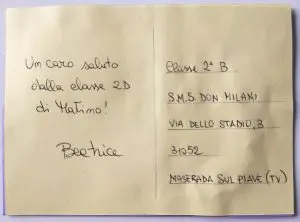 Un caro saluto
dalla classe 2D
di Matino!
Beatrice
Classe 2ª B
S.M.S. DON MILANI
VIA DELLO STADIO, 3
31052
MASERADA SUL PIAVE (TV)